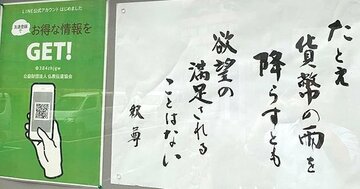 LINE公式アカウントはじめました
お友達登録で
お得な情報を
GET!
@384chjgw
公益財団法人仏教伝道協会
たとえ
貨幣の雨を
降らすとも
欲望の
満足される
ことはない
釈尊